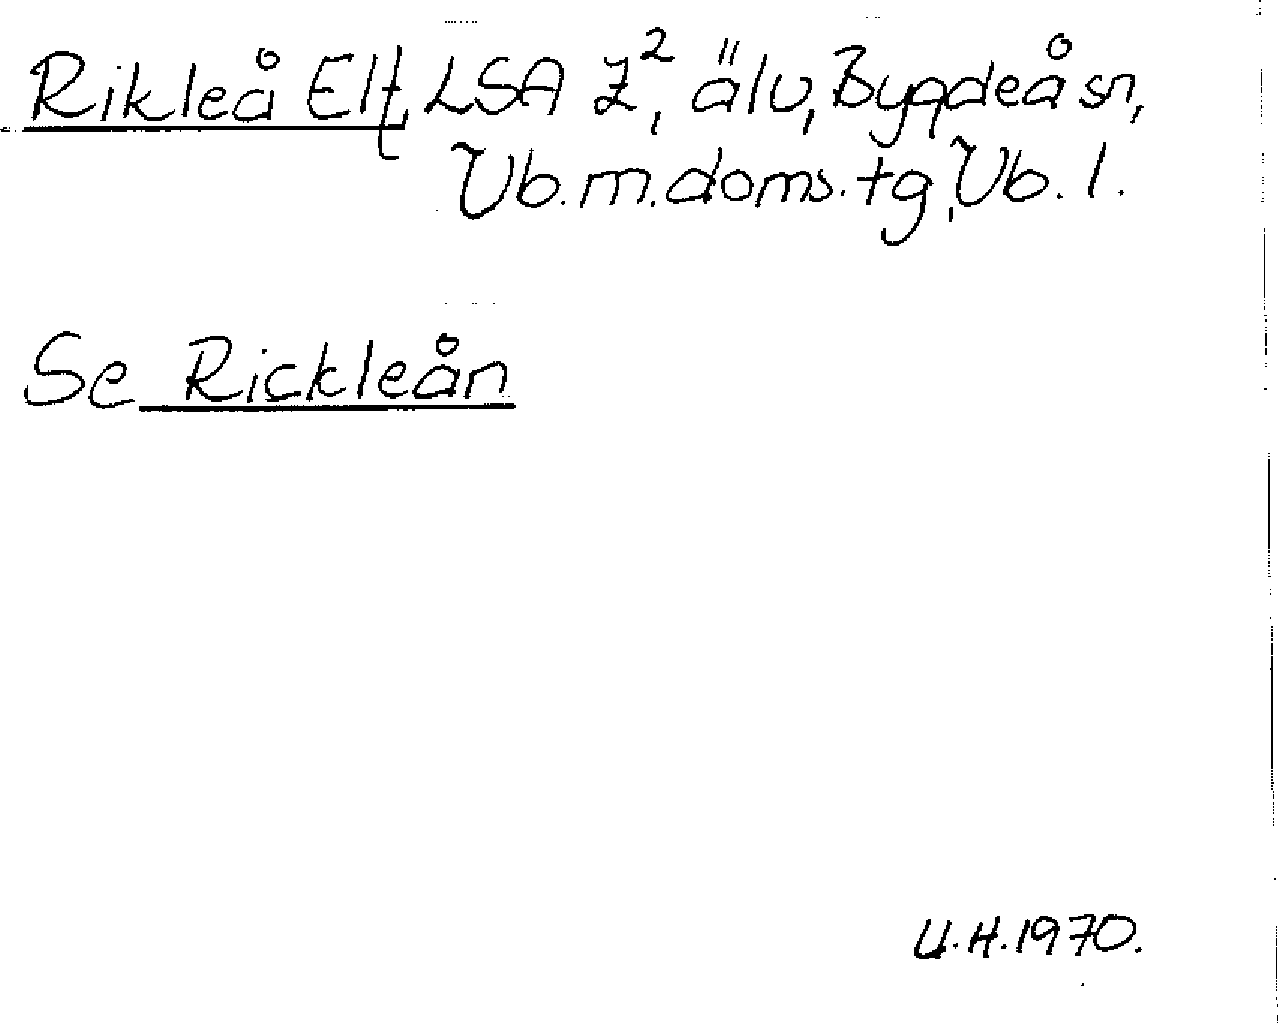 Rikleå Elf, LSA Z², älv, Bygdeå sn,
Vb. m. doms. tg, Vb. l.
Se Rickleån
U.H. 1970.